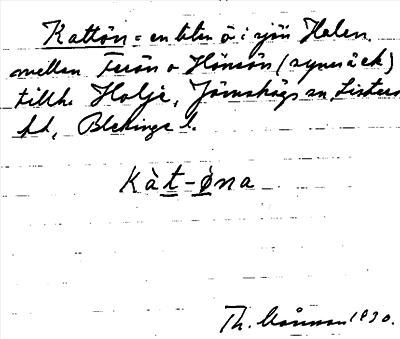 Kattön = en liten ö i sjön Halen
mellan Terön o Hönsön (synes åek)
tillh. Holje, Jämshögs sn, Listers
hd, Blekinge l.
Kàt-øna
Th. Månsson 1930.